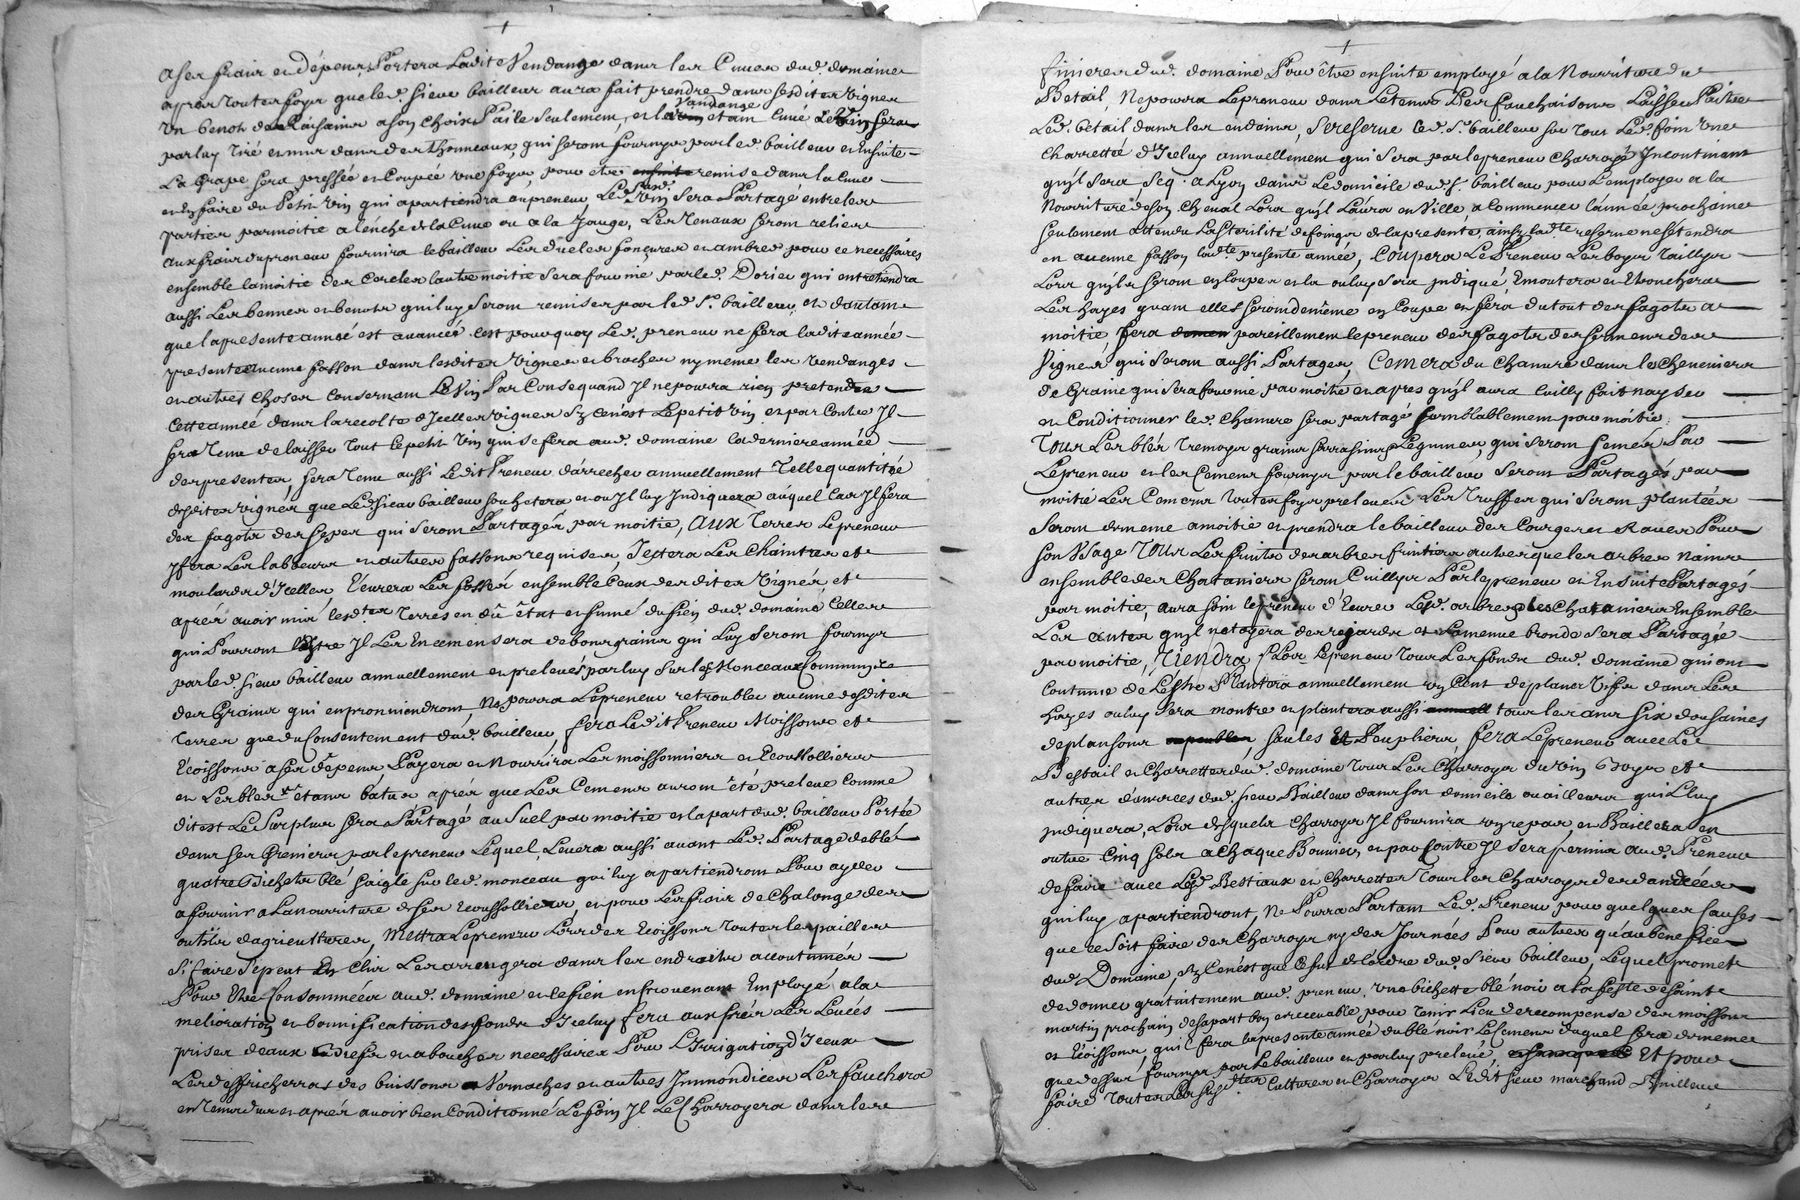 a ses fraix et dépens Portera Ladite Vendange dans les Cuves dud. domaine
apres toutes foys que led. sieur bailleur aura fait prendre dans lesdites vignes
un benot de Raisains a son choix Paile seulement, et la Vandange etant Cuvé Le Vin sera
par luy tiré et mis dans des thonneaux, qui seront fournys par led. bailleur et Ensuite
La Grape sera pressée et Coupée une foys, pour etre remise dans la Cuve
et y faire du Petit vin qui apartiendra au preneur, Led. Vin sera Partagé entre les
parties par moitié a lenche de la Cuve ou a la Jauge, Les tenaux seront reliés
aux fraix du preneur fournira le bailleur Les doueles fonçures et ambres pour ce necessaires
ensemble la moitié des Cercles lautre moitié sera fournie par led. Dorier qui entretiendra
aussi Les bennes et benots qui luy seront remises par led. sr. bailleur, et dautant
que la presente année est avancée cest pourquoy Led. preneur ne fera ladite année
presente aucune fasson dans lesdites vignes et broches ny meme les vendanges
et autres choses Consernant Le Vin Par Consequand Il ne pourra rien pretendre
Cette année dans la recolte d'Icelles vignes sy ce n'est Le petit vin et par Contre Il
sera tenu de laisser tout le petit vin qui se fera aud. domaine la derniere année
des presentes, sera tenu aussi Ledit Preneur d'arrecher annuellement telle quantité
desdites vignes que Led. sieur bailleur souhetera et ou Il luy Indiquera auquel Cas Il fera
des fagots des seps qui seront Partagés par moitié, aux terres Le preneur
y fera Les labbeurs et autres fassons requises, Jettera Les Chaintres et
moulards d'Icelles, Ecurera Les fossés ensemble Ceux desdites Vignes, et
aprés avoir mis lesdtes terres en dû état et fumé du sien dud. domaine Celles
qui Pourront Lestre Il Les Encemensera de bons grains qui Luy seront fournys
par led. sieur bailleur annuellement et prelevés par luy sur les Monceaux Communs
des Grains qui en proviendront, Ne pourra Le preneur retroubler aucune desdites
terres que du Consentement dud. bailleur fera Ledit Preneur Moissons et
Ecoissons a ses dépens Payera et Nourrira Les moissonniers et Ecoussolliers
et Les bleds étant batus aprés que Les Cemens auront été prelevé Comme
dit est Le Surplus sera Partagé au Suel par moitié et la part dud. bailleur Portée
dans ses Greniers par le preneur Lequel, Levera aussi avant Led. Partage de blé
quatre Bichets blé saigle sur led. monceau qui luy apartiendront Pour ayder
a fournir a La nourriture de ses Ecoussolliers, et pour Les fraix de Chalonge des
outils dagriculture, Mettra Le preneur Lors des Ecoissons toutes les pailles
Si faire se peut En Clir Les arrengera dans les endroits accoutumés
Pour Etre Consommées aud. domaine et le fien en provenant Employé a la
melioration et bonnification des fonds d'Iceluy fera aux prés Les Levées
prises deaux et aboucher necessaires Pour L'Irrigation d'Iceux
Les deffrichera des buissons Vernaches et autres Immondices Les fauchera
en tems du et aprés avoir bien Conditionné Le foin Il Le Charroyera dans les
finieres dud. domaine Pour être ensuite employé a la Nourriture du
Betail, Ne pourra Le preneur dans Le tems Des fauchaisons Laisser Paitre
Led. bétail dans les endains, se reserve led. sr. bailleur sur tous Led. foin une
Charretté d'Iceluy annuellement qui sera par le preneur Charroyé Incontinant
qu'il sera Seq. a Lyon dans Le domicile dud. sr. bailleur pour L'employer a la
Nourriture de son Cheval Lors qu'il Laura en Ville, a Commencer lannée prochaine
seulement attendu La sterilité de foings de la presente, ainsy ladte reserve ne sétendra
en aucune fasson ladte presente année, Coupera Le Preneur Les boys taillys
Lors qu'ils seront en Coupe et la ou luy sera indiqué, Emoutera et Etronchera
Les hayes quant elles seront de même en Coupe et fera du tout des fagots a
moitié, fera pareillement le preneur des fagots de serments des
Vignes qui seront aussi Partagés, Cemera du Chanvre dans le Cheneviers
de Graine qui sera fournie par moitié et apres qu'il aura Cuilly fait nayser
et Conditionner led. Chanvre sera partagé semblablement par moitié
Tous Les bleds tremoys grains sarrasins Legumes, qui seront semés Par
Le preneur et les Cemens fournys par le bailleur seront Partagés par
moitié Les Cemens toutes foys prelevés Les truffes qui seront plantées
seront de meme a moitié et prendra le bailleur des Courges et Raves Pour
son Usage Tous Les fruits des arbres fruitiers autres que les arbres nains
ensemble des Chataniers seront Cuillys Par le preneur et Ensuite Partagés
par moitié, aura soin le preneur d'Ecurer Les arbres, les Chataniers Ensemble
Les entes qu'il netoyera des regards et La menue bronde sera Partagée
par moitié, Tiendra Le preneur tous Les fonds dud. domaine qui ont
Coutume de Lestre Plantera annuellement un Cent de plans vifs dans Les
hayes ou luy sera montré et plantera aussi tous les ans six dousaines
de plansons saules Et Peupliers, fera Le preneur avec Le
Bestail et Charrettes dud. domaine tous Les Charroys du vin Boys et
autres denrees dud. sieur Bailleur dans son domicile ou ailleurs qu'il luy
indiquera, Lors desquels Charroys Il fournira un repas et Baillera en
outre Cinq sols a Chaque Bouvier, et par Contre Il sera permis aud. Preneur
de faire avec Led. Bestiaux et Charrettes tous les Charroys des denrées
qui luy apartiendront, Ne Pourra Partant Led. Preneur pour quelques Causes
que ce soit faire des Charroys ny des Journées Pour autres qu'au benefice
dud Domaine, sy ce n'est que Ce fut de lordre dud. sieur bailleur, Lequel promet
de donner gratuitement aud. preneur, une bichette blé noir a la feste de Saint
martin prochain de sa part bon et recevable, pour tenir Lieu de recompense des moissons
et Ecoissons qu'il fera la presente année du blé noir Le Cemens duquel sera de meme
que dessus fourny par Le bailleur et par luy prelevé, Et pour
faire toutes Les susdtes Cultures et Charroys Ledit sieur marchand Bailleur